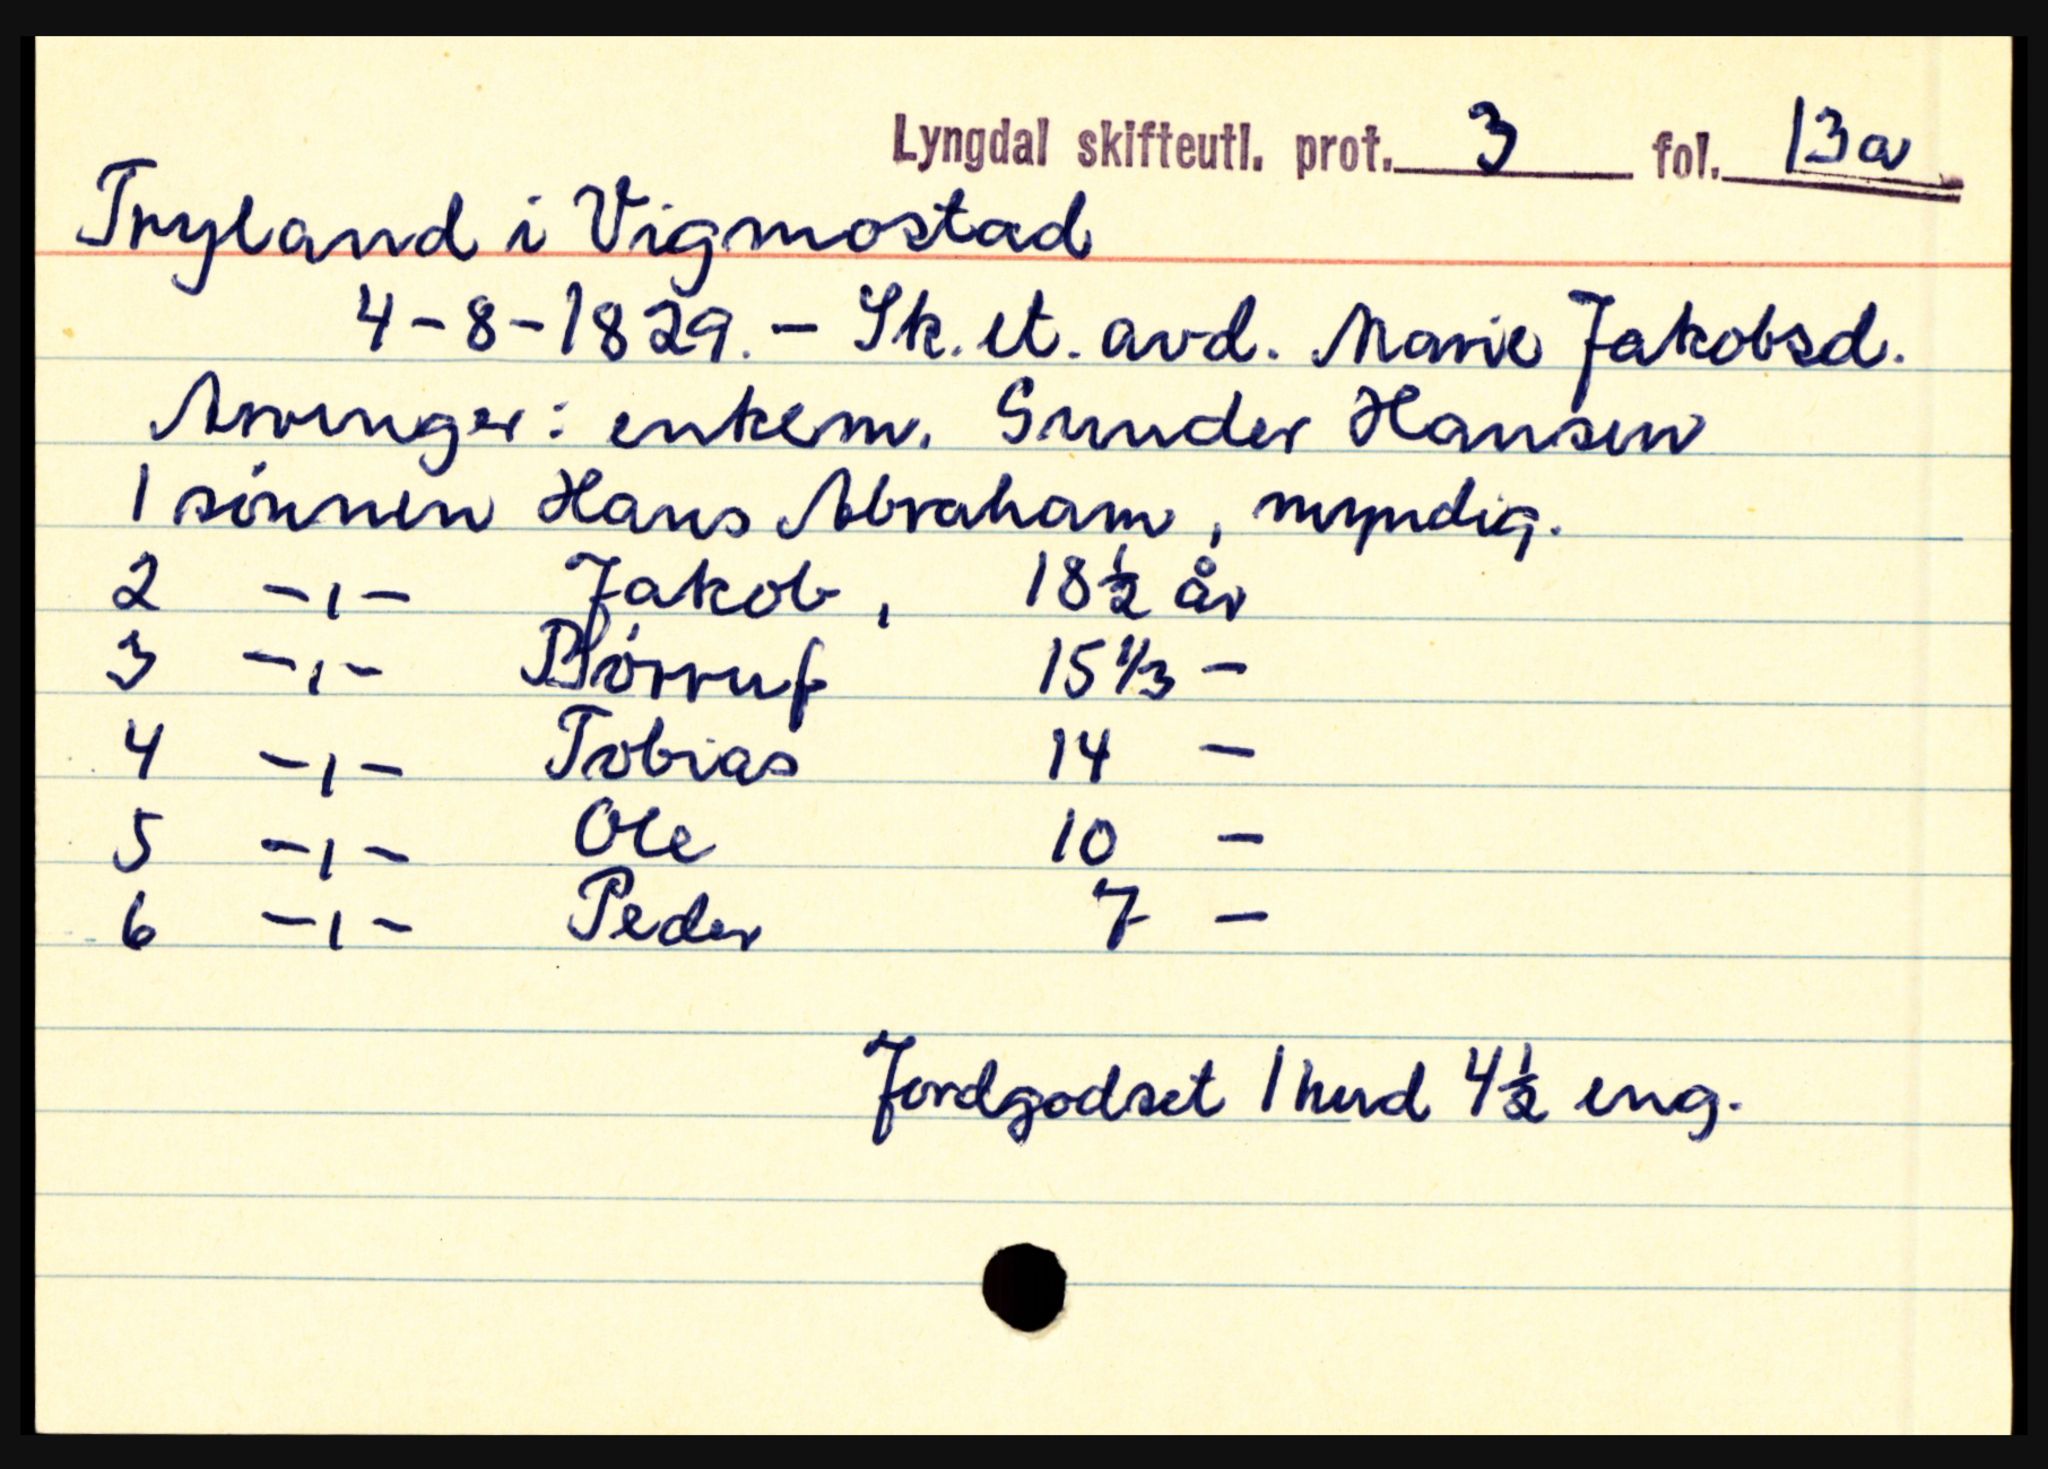 Lyngdal skifteutl. prot. 3 fol. 13a
Tryland i Vigmostad
4-8-1829. - Sk. et. avd. Marie Jakobsd.
Arvinger: enkem. Gunder Hansen
1 sønnen Hans Abraham, myndig.
2 -,- Jakob, 18½ år
3 -,- Børruf 15 1/3 -
4 -,- Tobias 14 -
5 -,- Ole 10 -
6 -,- Peder 7 -
Jordgodset 1 hud 4½ eng.